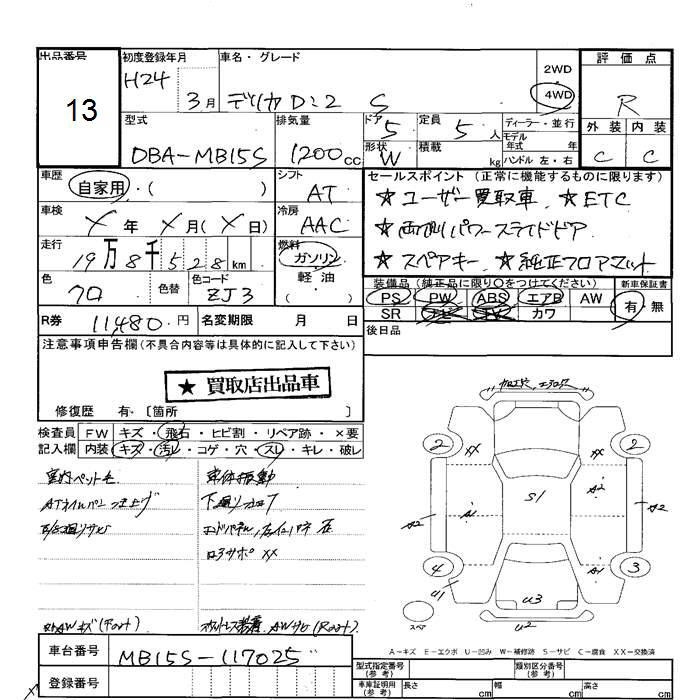 出品番号
13
初度登録年月
H24
3月
車名・グレード
デリカD:2 S
2WD
4WD
評価点
R
外装 内装
C C
型式
DBA-MB15S
排気量
1200cc
ドア
5
定員
5人
ディーラー・並行
モデル年式 年
ハンドル 左・右
形状
W
積載
kg
車歴
自家用・( )
シフト
AT
セールスポイント(正常に機能するものに限ります)
★ユーザー買取車 ★ETC
★両側パワースライドドア
★スペアキー ★純正フロアマット
車検
X年 X月(X日)
冷房
AAC
走行
19万8千528km
燃料
ガソリン
軽油
・( )
色
クロ
色替
色コード
ZJ3
装備品(純正品に限り○をつけてください)
PS PW ABS エアB AW
SR ナビ TV カワ
新車保証書
有・無
R券
11480円
名変期限 月 日
後日品
注意事項申告欄(不具合内容等は具体的に記入して下さい)
★買取店出品車
修復歴 有.〔箇所 〕
検査員記入欄
FW キズ・飛石・ヒビ割・リペア跡・×要
内装 キズ・汚レ・コゲ・穴・スレ・キレ・破レ
室内ペット毛
車体振動
下廻り
XX
(Front)
AWサビ(Rear)
2
XX
XX
2
A2
S1
A2
A1
A2
4
U1
A1
3
U3
U2
スペア
A-キズ E-エクボ U-凹み W-補修跡 S-サビ C-腐食 XX-交換済
車台番号
MB15S-117025
登録番号
型式指定番号(参考)
類別区分番号(参考)
車庫証明用(参考)
長さ cm
幅 cm
高さ cm